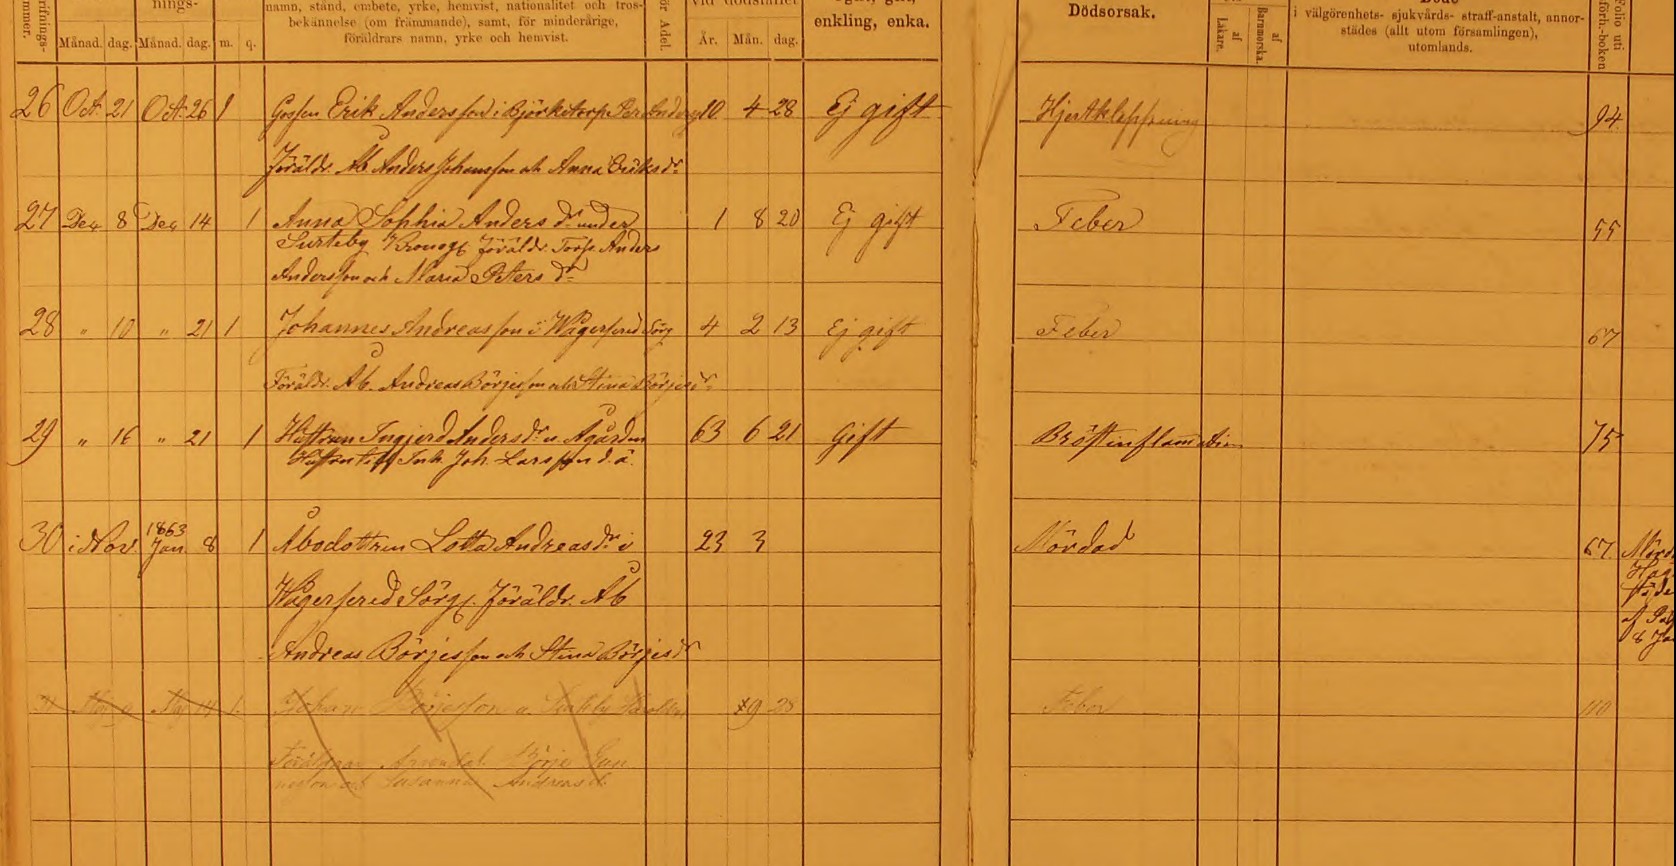 nings- namn, stånd, embete, yrke, hemvist, nationalitet och tros- vid dödsfallet
bekännelse (om främmande), samt, för minderårige,
föräldrars namn, yrke och hemvist.
Månad. dag. Månad. dag. m. q. För Adel. År. Mån. dag. enkling, enka.
Dödsorsak. af Läkare. af Barnmorska. Döde
i välgörenhets- sjukvårds- straff-anstalt, annor-
städes (allt utom församlingen),
utomlands.
Folio uti förh.-boken
26 Oct. 21 Oct. 26 1 Gossen Erik Andersson i Björketorp Per Andersg 10 4 28 Ej gift Hjertklappning 94.
Föräldr. Åb Anders Johansson och Anna Eriksdr
27 Dec 8 Dec 14 1 Anna Sophia Andersdr under 1 8 20 Ej gift Feber 55
Surteby Kronog. Föräldr Torp. Anders
Andersson och Maria Petersdr
28 " 10 " 21 1 Johannes Andreasson i Wägersered Sörg 4 2 13 Ej gift Feber 67
Föräldr. Åb. Andreas Börjesson och Stina Börjesdr
29 " 16 " 21 1 Hustrun Ingierd Andersdr u Ågården 63 6 21 Gift Bröstinflamation 75
Hustru till Inh. Joh. Larsson d.ä.
30 i Nov. 1863 Jan 8 1 Åbodottren Lotta Andreasdr i 23 3 Mördad 67.
Wägersered Sörg. Föräldr. Åb
Andreas Börjesson och Stina Börjesdr
31 Maj 9 Maj 14 1. Johan Börjesson u. Surteby 9 28 Feber 110
Föräldrar Börje
och Susanna Andreasd.